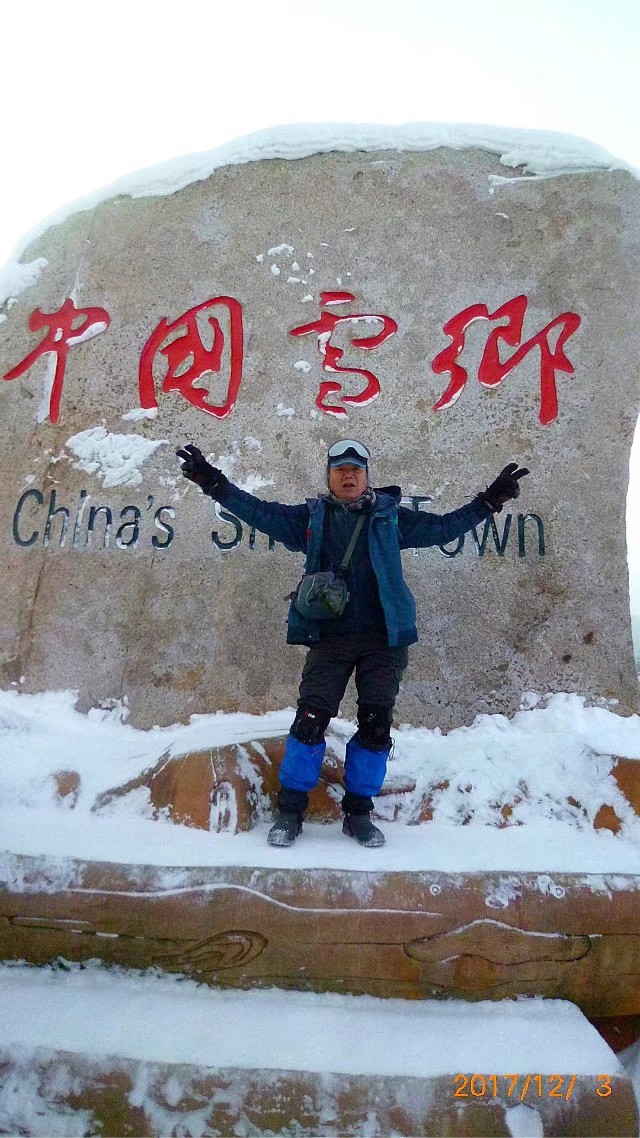 中国雪乡
China's Sn Town
2017/12/ 3